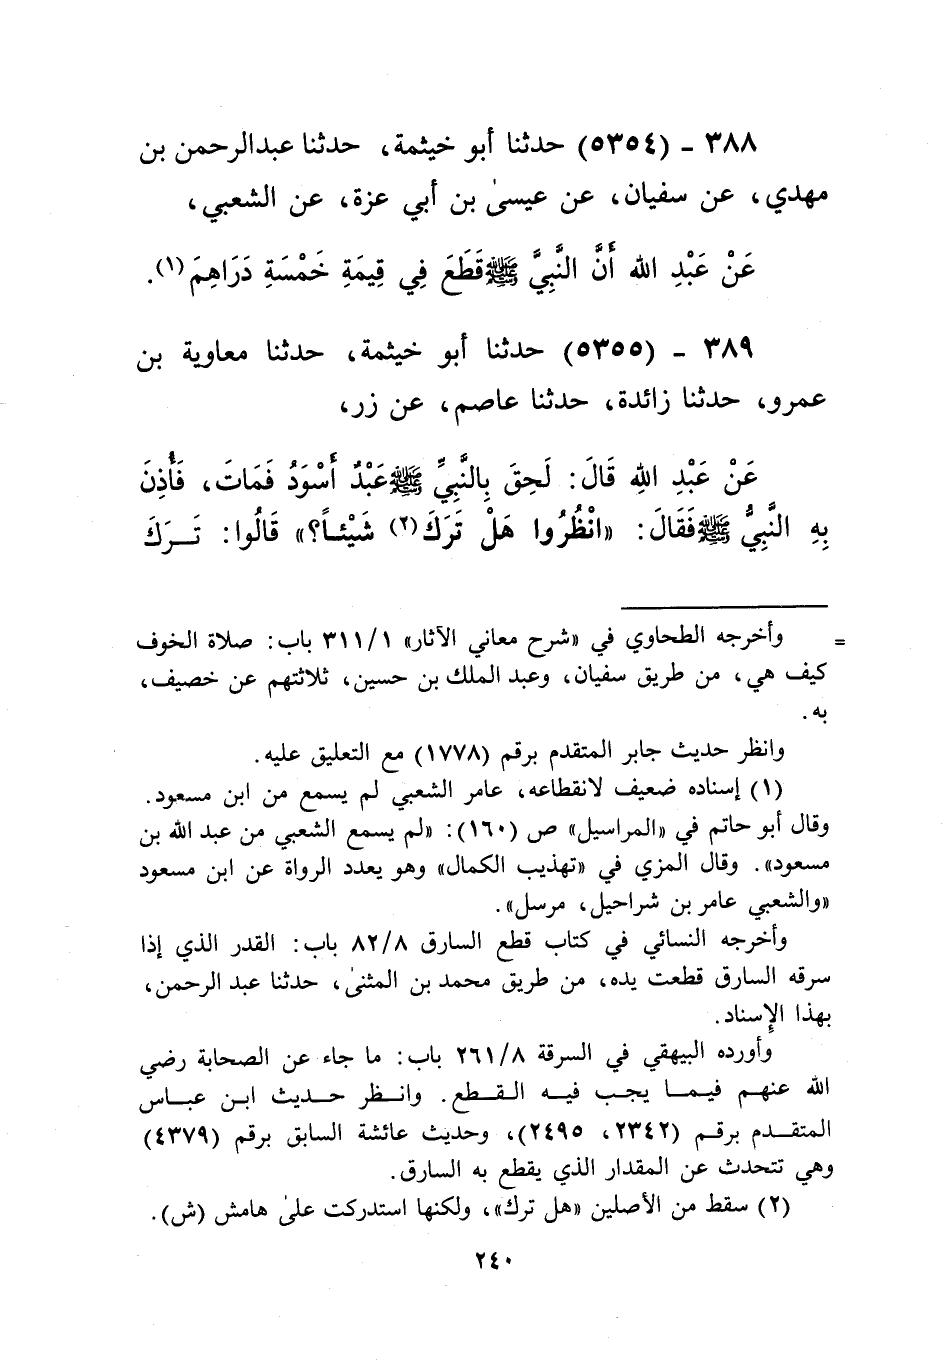 ٣٨٨ - (٥٣٥٤) حدثنا أبو خيثمة، حدثنا عبدالرحمن بن
مهدي، عن سفيان، عن عيسىٰ بن أبي عزة، عن الشعبي،
عَنْ عَبْدِ الله أَنَّ النَّبِيَّ ﷺ قَطَعَ فِي قِيمَةِ خَمْسَةِ دَرَاهِمَ (١).
٣٨٩ - (٥٣٥٥) حدثنا أبو خيثمة، حدثنا معاوية بن
عمرو، حدثنا زائدة، حدثنا عاصم، عن زر،
عَنْ عَبْدِ اللهِ قَالَ: لَحِقَ بِالنَّبِيِّ ﷺ عَبْدٌ أَسْوَدُ فَمَاتَ، فَأُذِنَ
بِهِ النَّبِيُّ ﷺ فَقَالَ: «انْظُرُوا هَلْ تَرَكَ (٢) شَيْئاً؟» قَالُوا: تَرَكَ
= وأخرجه الطحاوي في «شرح معاني الآثار» ٣١١/١ باب: صلاة الخوف
كيف هي، من طريق سفيان، وعبد الملك بن حسين، ثلاثتهم عن خصيف،
به.
وانظر حديث جابر المتقدم برقم (١٧٧٨) مع التعليق عليه.
(١) إسناده ضعيف لانقطاعه، عامر الشعبي لم يسمع من ابن مسعود.
وقال أبو حاتم في «المراسيل» ص (١٦٠): «لم يسمع الشعبي من عبد الله بن
مسعود». وقال المزي في «تهذيب الكمال» وهو يعدد الرواة عن ابن مسعود
«والشعبي عامر بن شراحيل، مرسل».
وأخرجه النسائي في كتاب قطع السارق ٨٢/٨ باب: القدر الذي إذا
سرقه السارق قطعت يده، من طريق محمد بن المثنىٰ، حدثنا عبد الرحمن،
بهذا الإسناد.
وأورده البيهقي في السرقة ٢٦١/٨ باب: ما جاء عن الصحابة رضي
الله عنهم فيما يجب فيه القطع. وانظر حديث ابن عباس
المتقدم برقم (٢٣٤٢، ٢٤٩٥)، وحديث عائشة السابق برقم (٤٣٧٩)
وهي تتحدث عن المقدار الذي يقطع به السارق.
(٢) سقط من الأصلين «هل ترك»، ولكنها استدركت علىٰ هامش (ش).
٢٤٠